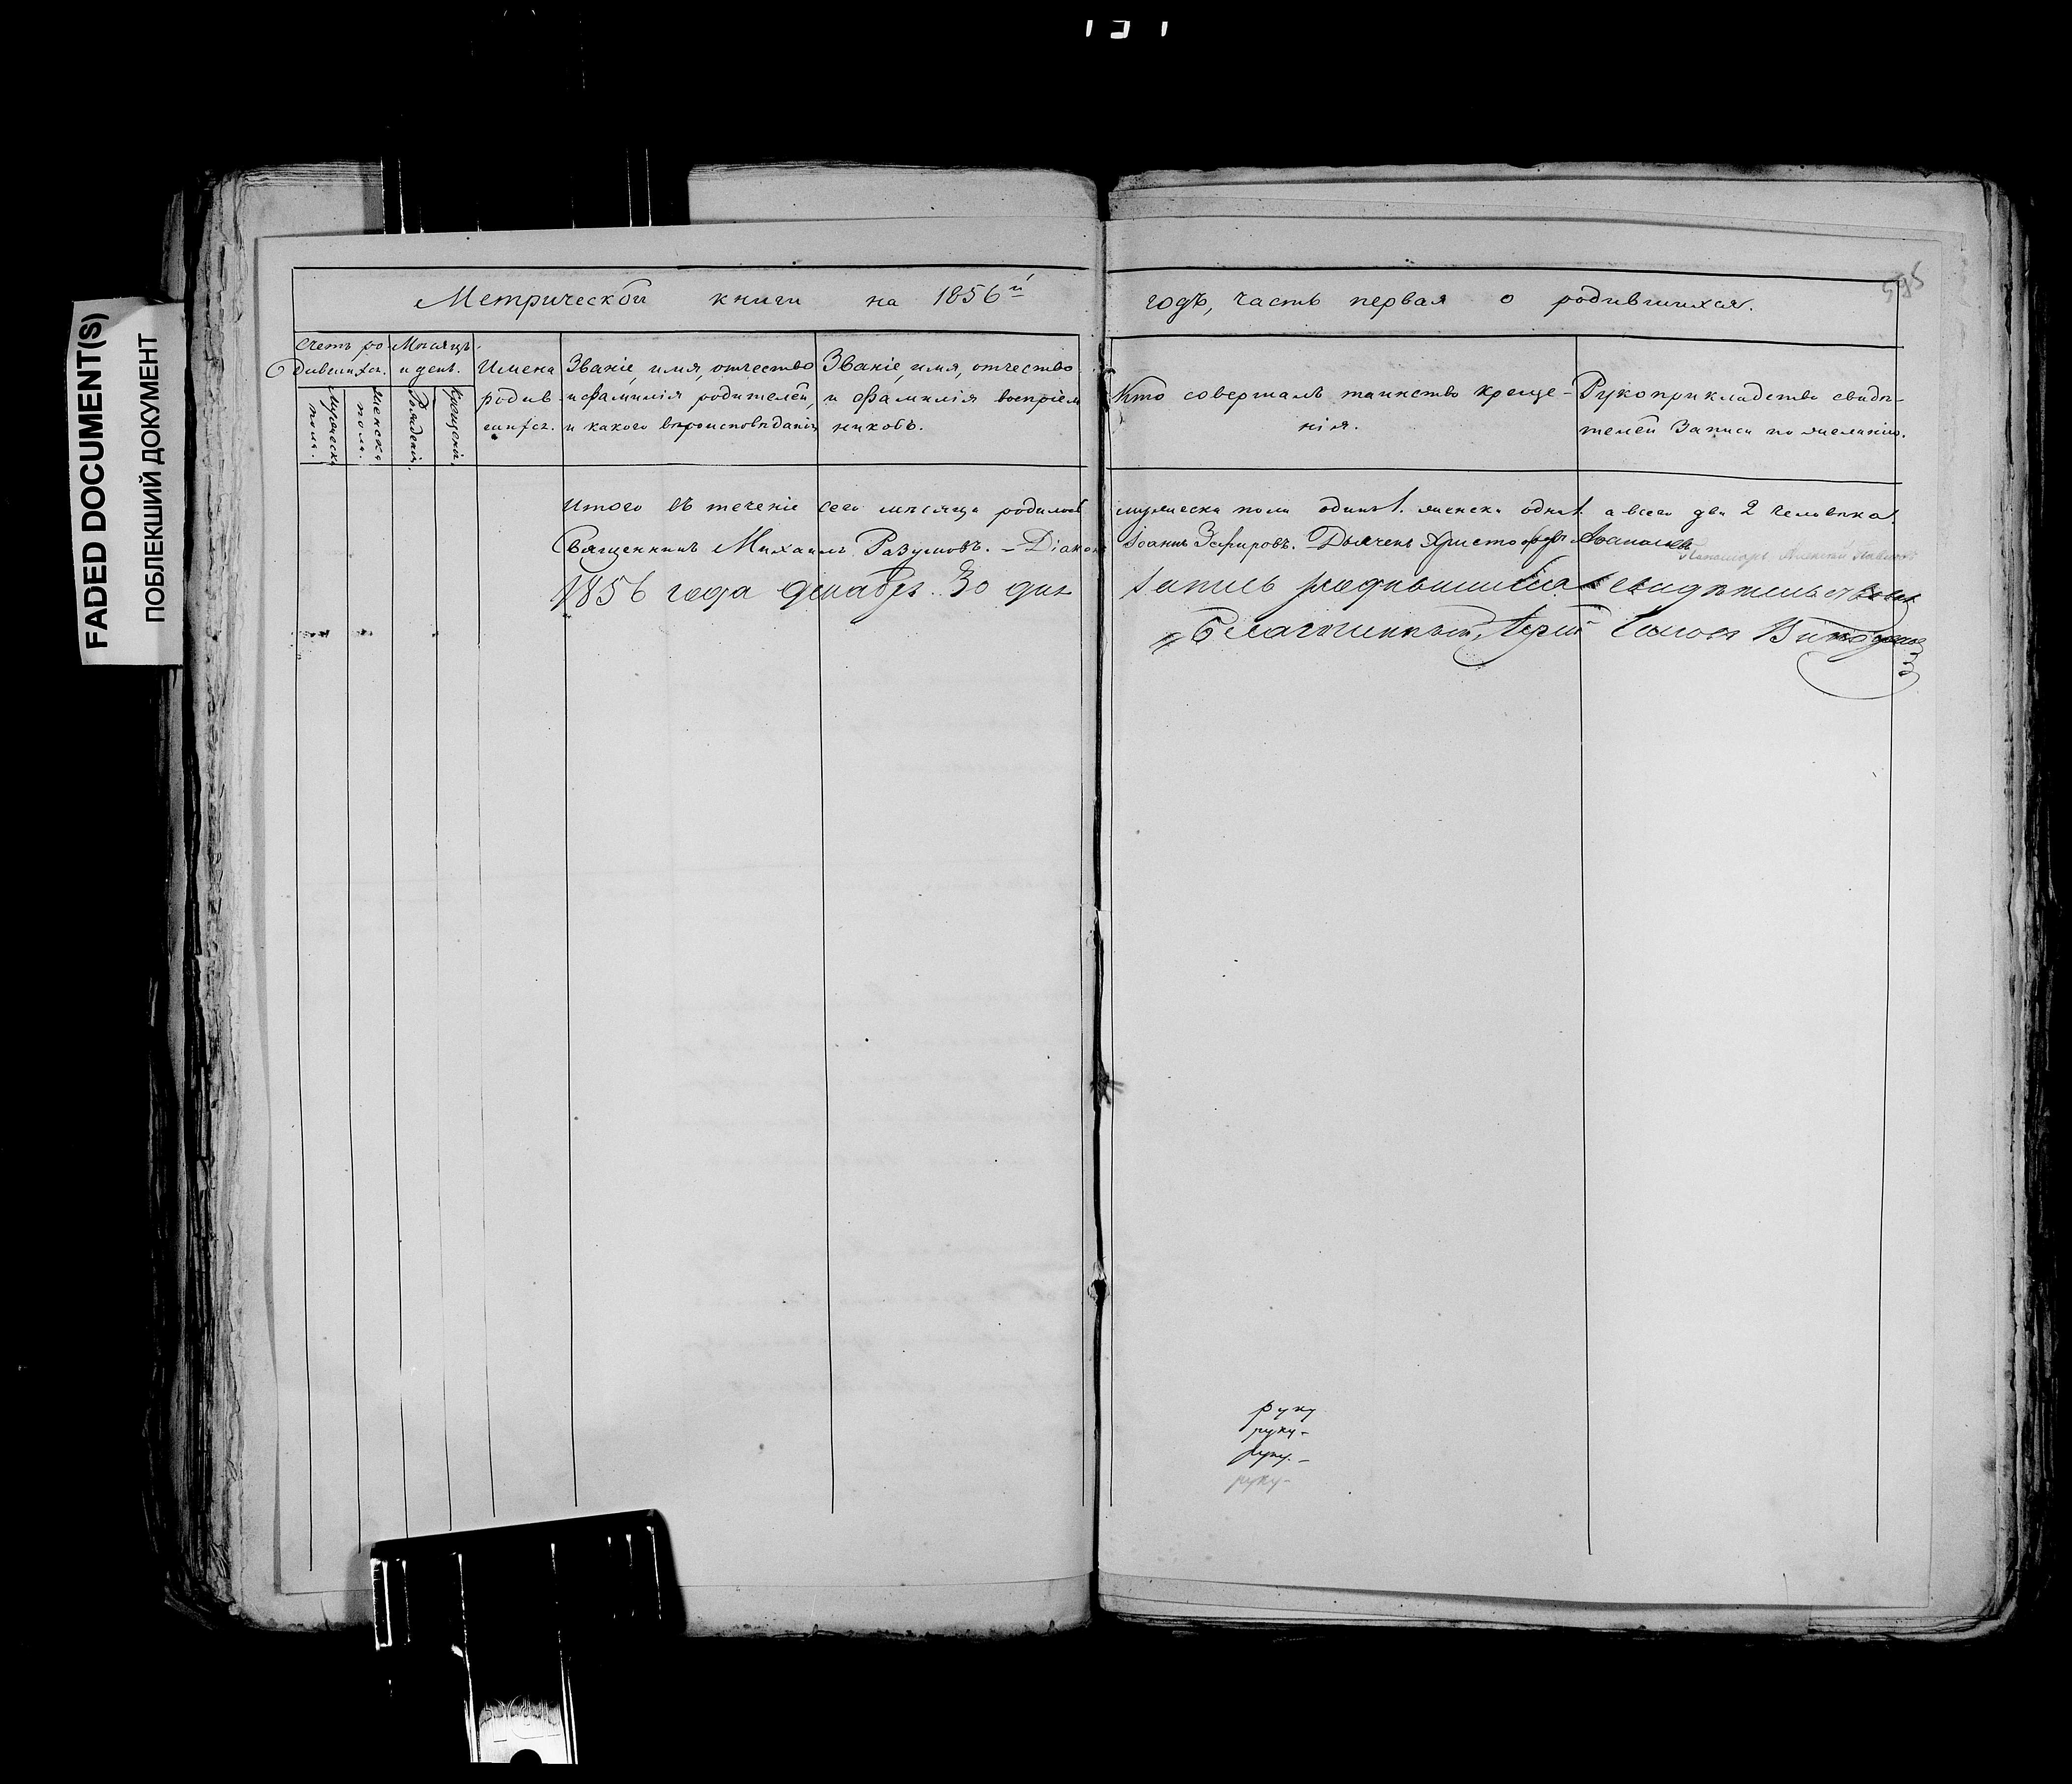 FADED DOCUMENT(S)
ПОБЛЕКШИЙ ДОКУМЕНТ
595
Метрической книги на 1856й годъ, часть первая о родившихся.
Счетъ родившихся.
Мужеска пола.
Женска пола.
Мѣсяцъ и день.
Рожденія.
Крещенія.
Имена родившихся.
Званіе, имя, отчество и фамилія родителей, и какого вѣроисповѣданія
Званіе, имя, отчество и фамилія воспріемниковъ.
Кто совершалъ таинство крещенія.
Рукоприкладство свидѣтелей записи по желанію.
Итого въ теченіе сего мѣсяца родилось мужеска пола одинъ 1. женска одна 1. а всего два 2 человѣка.
Священникъ Михаилъ Разумовъ. – Діаконъ Іоаннъ Зефировъ. – Дьячекъ Христофоръ
Пономарь Алексѣй
1856 года декабря 30 дня запись родившихся свидѣтельствовалъ
Благочинный, Іерей
руку
руку –
руку. –
руку –